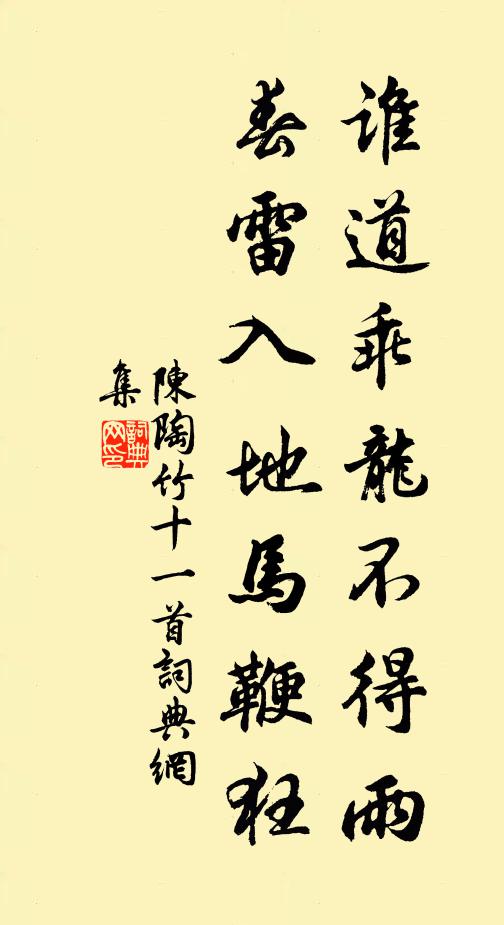 誰道乖龍不得雨
春雷入地馬鞭狂
陳陶竹十一首詞典網
集
詞典
网印